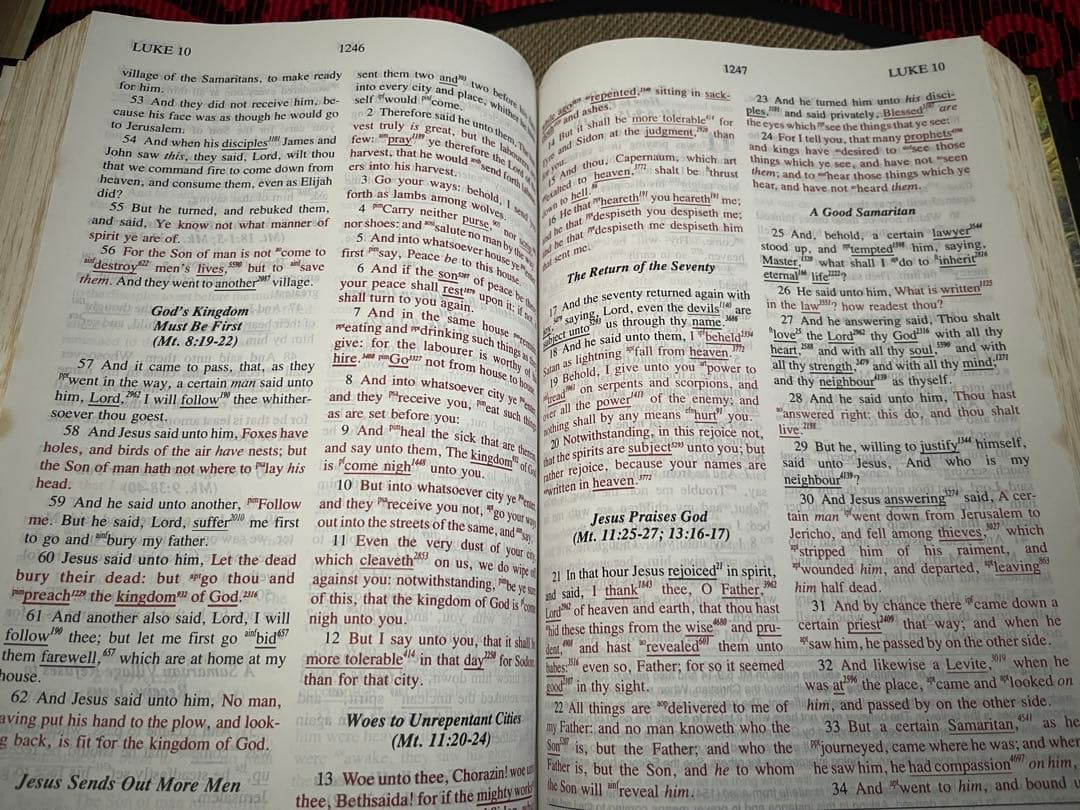 LUKE 10
1246
village of the Samaritans, to make ready
for him.
53 And they did not receive him, be-
cause his face was as though he would go
to Jerusalem.
54 And when his disciples James and
John saw this, they said, Lord, wilt thou
that we command fire to come down from
heaven, and consume them, even as Elijah
did?
55 But he turned, and rebuked them,
and said, Ye know not what manner of
spirit ye are of.
56 For the Son of man is not come to
destroy men's lives, but to save
them. And they went to another village.
God's Kingdom
Must Be First
(Mt. 8:19-22)
57 And it came to pass, that, as they
went in the way, a certain man said unto
him, Lord, I will follow thee whither-
soever thou goest.
58 And Jesus said unto him, Foxes have
holes, and birds of the air have nests; but
the Son of man hath not where to lay his
head.
59 And he said unto another, Follow
me. But he said, Lord, suffer me first
to go and bury my father.
60 Jesus said unto him, Let the dead
bury their dead: but go thou and
preach the kingdom of God.
61 And another also said, Lord, I will
follow thee; but let me first go bid
them farewell, which are at home at my
house.
62 And Jesus said unto him, No man,
aving put his hand to the plow, and look-
g back, is fit for the kingdom of God.
Jesus Sends Out More Men
sent them two and two before
into every city and place, whither he
self would come.
2 Therefore said he unto them, The
vest truly is great, but the labourers
few: pray ye therefore the Lord of
harvest, that he would send forth
ers into his harvest.
3 Go your ways: behold, I send
forth as lambs among wolves.
4 Carry neither purse, nor
nor shoes: and salute no man by the way
5 And into whatsoever house ye
first say, Peace be to this house.
6 And if the son of peace be
your peace shall rest upon it: if not
shall turn to you again.
7 And in the same house
eating and drinking such things as
give: for the labourer is worthy of
hire. Go not from house to house
8 And into whatsoever city ye
and they receive you, eat such things
as are set before you:
9 And heal the sick that are
and say unto them, The kingdom of
is come nigh unto you.
10 But into whatsoever city ye enter
and they receive you not, go your ways
out into the streets of the same, and say
11 Even the very dust of your city
which cleaveth on us, we do wipe
against you: notwithstanding, be ye
of this, that the kingdom of God is
nigh unto you.
12 But I say unto you, that it shall
more tolerable in that day for Sodom
than for that city.
Woes to Unrepentant Cities
(Mt. 11:20-24)
13 Woe unto thee, Chorazin! woe
thee, Bethsaida! for if the mighty works
1247
LUKE 10
ago repented, sitting in sack-
and ashes.
14 But it shall be more tolerable for
Tyre and Sidon at the judgment, than
for you.
15 And thou, Capernaum, which art
exalted to heaven, shalt be thrust
down to hell.
16 He that heareth you heareth me;
and he that despiseth you despiseth me;
and he that despiseth me despiseth him
that sent me.
The Return of the Seventy
17 And the seventy returned again with
joy, saying, Lord, even the devils are
subject unto us through thy name.
18 And he said unto them, I beheld
Satan as lightning fall from heaven.
19 Behold, I give unto you power to
tread on serpents and scorpions, and
over all the power of the enemy: and
nothing shall by any means hurt you.
20 Notwithstanding, in this rejoice not,
that the spirits are subject unto you; but
rather rejoice, because your names are
written in heaven.
Jesus Praises God
(Mt. 11:25-27; 13:16-17)
21 In that hour Jesus rejoiced in spirit,
and said, I thank thee, O Father,
Lord of heaven and earth, that thou hast
hid these things from the wise and pru-
dent, and hast revealed them unto
babes: even so, Father; for so it seemed
good in thy sight.
22 All things are delivered to me of
my Father: and no man knoweth who the
Son is, but the Father; and who the
Father is, but the Son, and he to whom
the Son will reveal him.
23 And he turned him unto his disci-
ples, and said privately, Blessed are
the eyes which see the things that ye see:
24 For I tell you, that many prophets
and kings have desired to see those
things which ye see, and have not seen
them; and to hear those things which ye
hear, and have not heard them.
A Good Samaritan
25 And, behold, a certain lawyer
stood up, and tempted him, saying,
Master, what shall I do to inherit
eternal life?
26 He said unto him, What is written
in the law? how readest thou?
27 And he answering said, Thou shalt
love the Lord thy God with all thy
heart, and with all thy soul, and with
all thy strength, and with all thy mind;
and thy neighbour as thyself.
28 And he said unto him, Thou hast
answered right: this do, and thou shalt
live.
29 But he, willing to justify himself,
said unto Jesus, And who is my
neighbour?
30 And Jesus answering said, A cer-
tain man went down from Jerusalem to
Jericho, and fell among thieves, which
stripped him of his raiment, and
wounded him, and departed, leaving
him half dead.
31 And by chance there came down a
certain priest that way; and when he
saw him, he passed by on the other side.
32 And likewise a Levite, when he
was at the place, came and looked on
him, and passed by on the other side.
33 But a certain Samaritan, as he
journeyed, came where he was; and when
he saw him, he had compassion on him,
34 And went to him, and bound